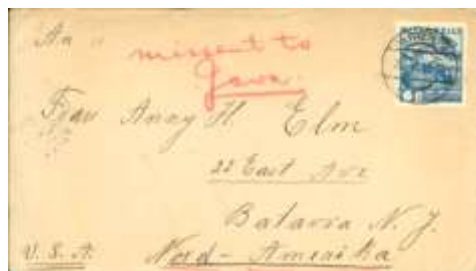 An
missent to
Java.
Frau Anny H. Elm
22 East Ave
Batavia N. Y.
U. S. A.
Nord-Amerika